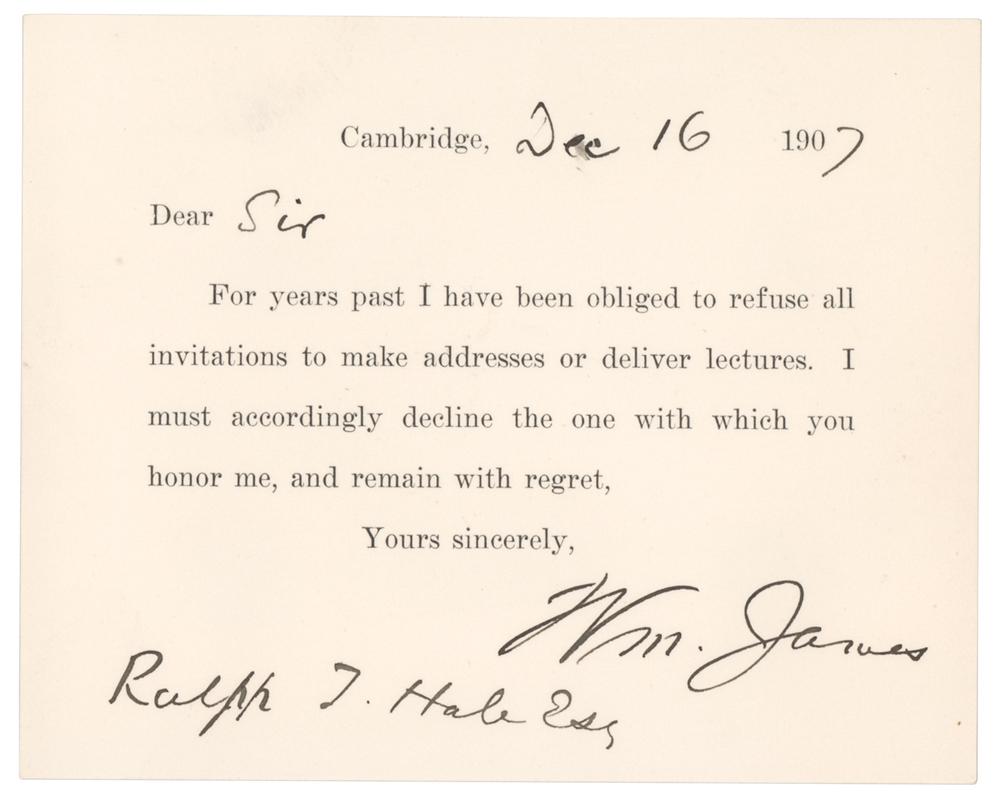 Cambridge, Dec 16 1907
Dear Sir
For years past I have been obliged to refuse all
invitations to make addresses or deliver lectures. I
must accordingly decline the one with which you
honor me, and remain with regret,
Yours sincerely,
Wm. James
Ralph T. Hale Esq